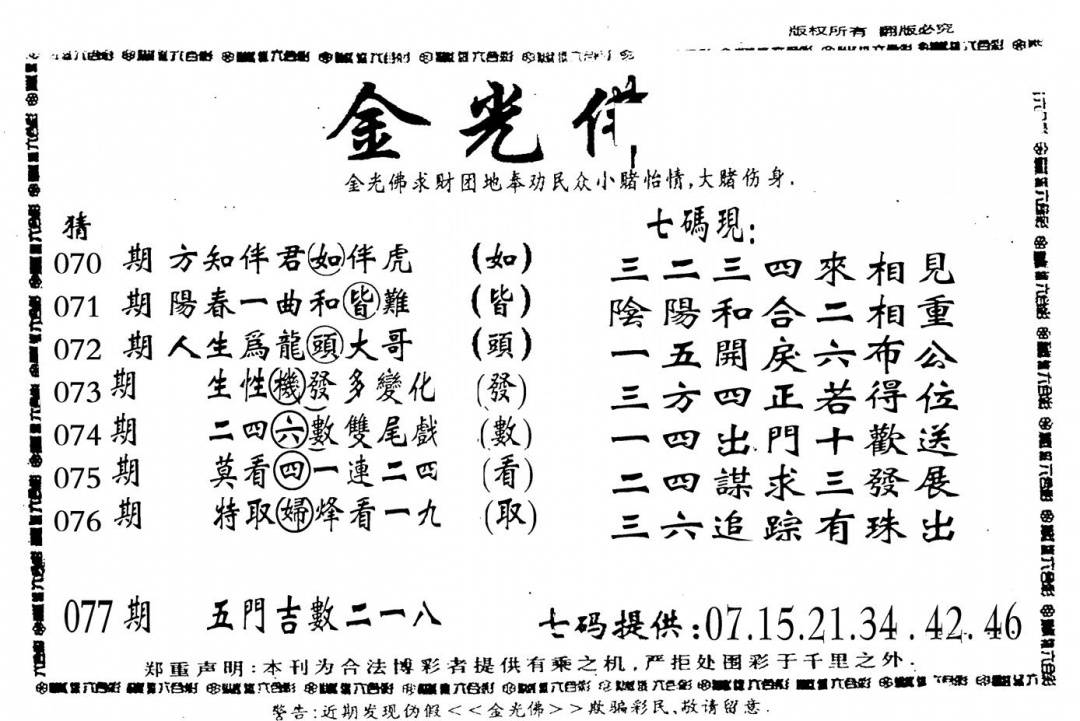 版权所有 翻版必究
金光佛
金光佛求财团地奉劝民众小赌怡情,大赌伤身.
猜
070 期 方知伴君如伴虎 (如)
071 期 陽春一曲和皆難 (皆)
072 期 人生爲龍頭大哥 (頭)
073 期 生性機發多變化 (發)
074 期 二四六數雙尾戲 (數)
075 期 莫看四一連二四 (看)
076 期 特取婦烽看一九 (取)
077 期 五門吉數二一八
七碼現:
三二三四來相見
陰陽和合二相重
一五開戾六布公
三方四正若得位
一四出門十歡送
二四謀求三發展
三六追踪有珠出
七码提供:07.15.21.34.42.46
郑重声明:本刊为合法博彩者提供有乘之机,严拒处围彩于千里之外.
警告:近期发现伪假<<金光佛>>欺骗彩民,敬请留意.